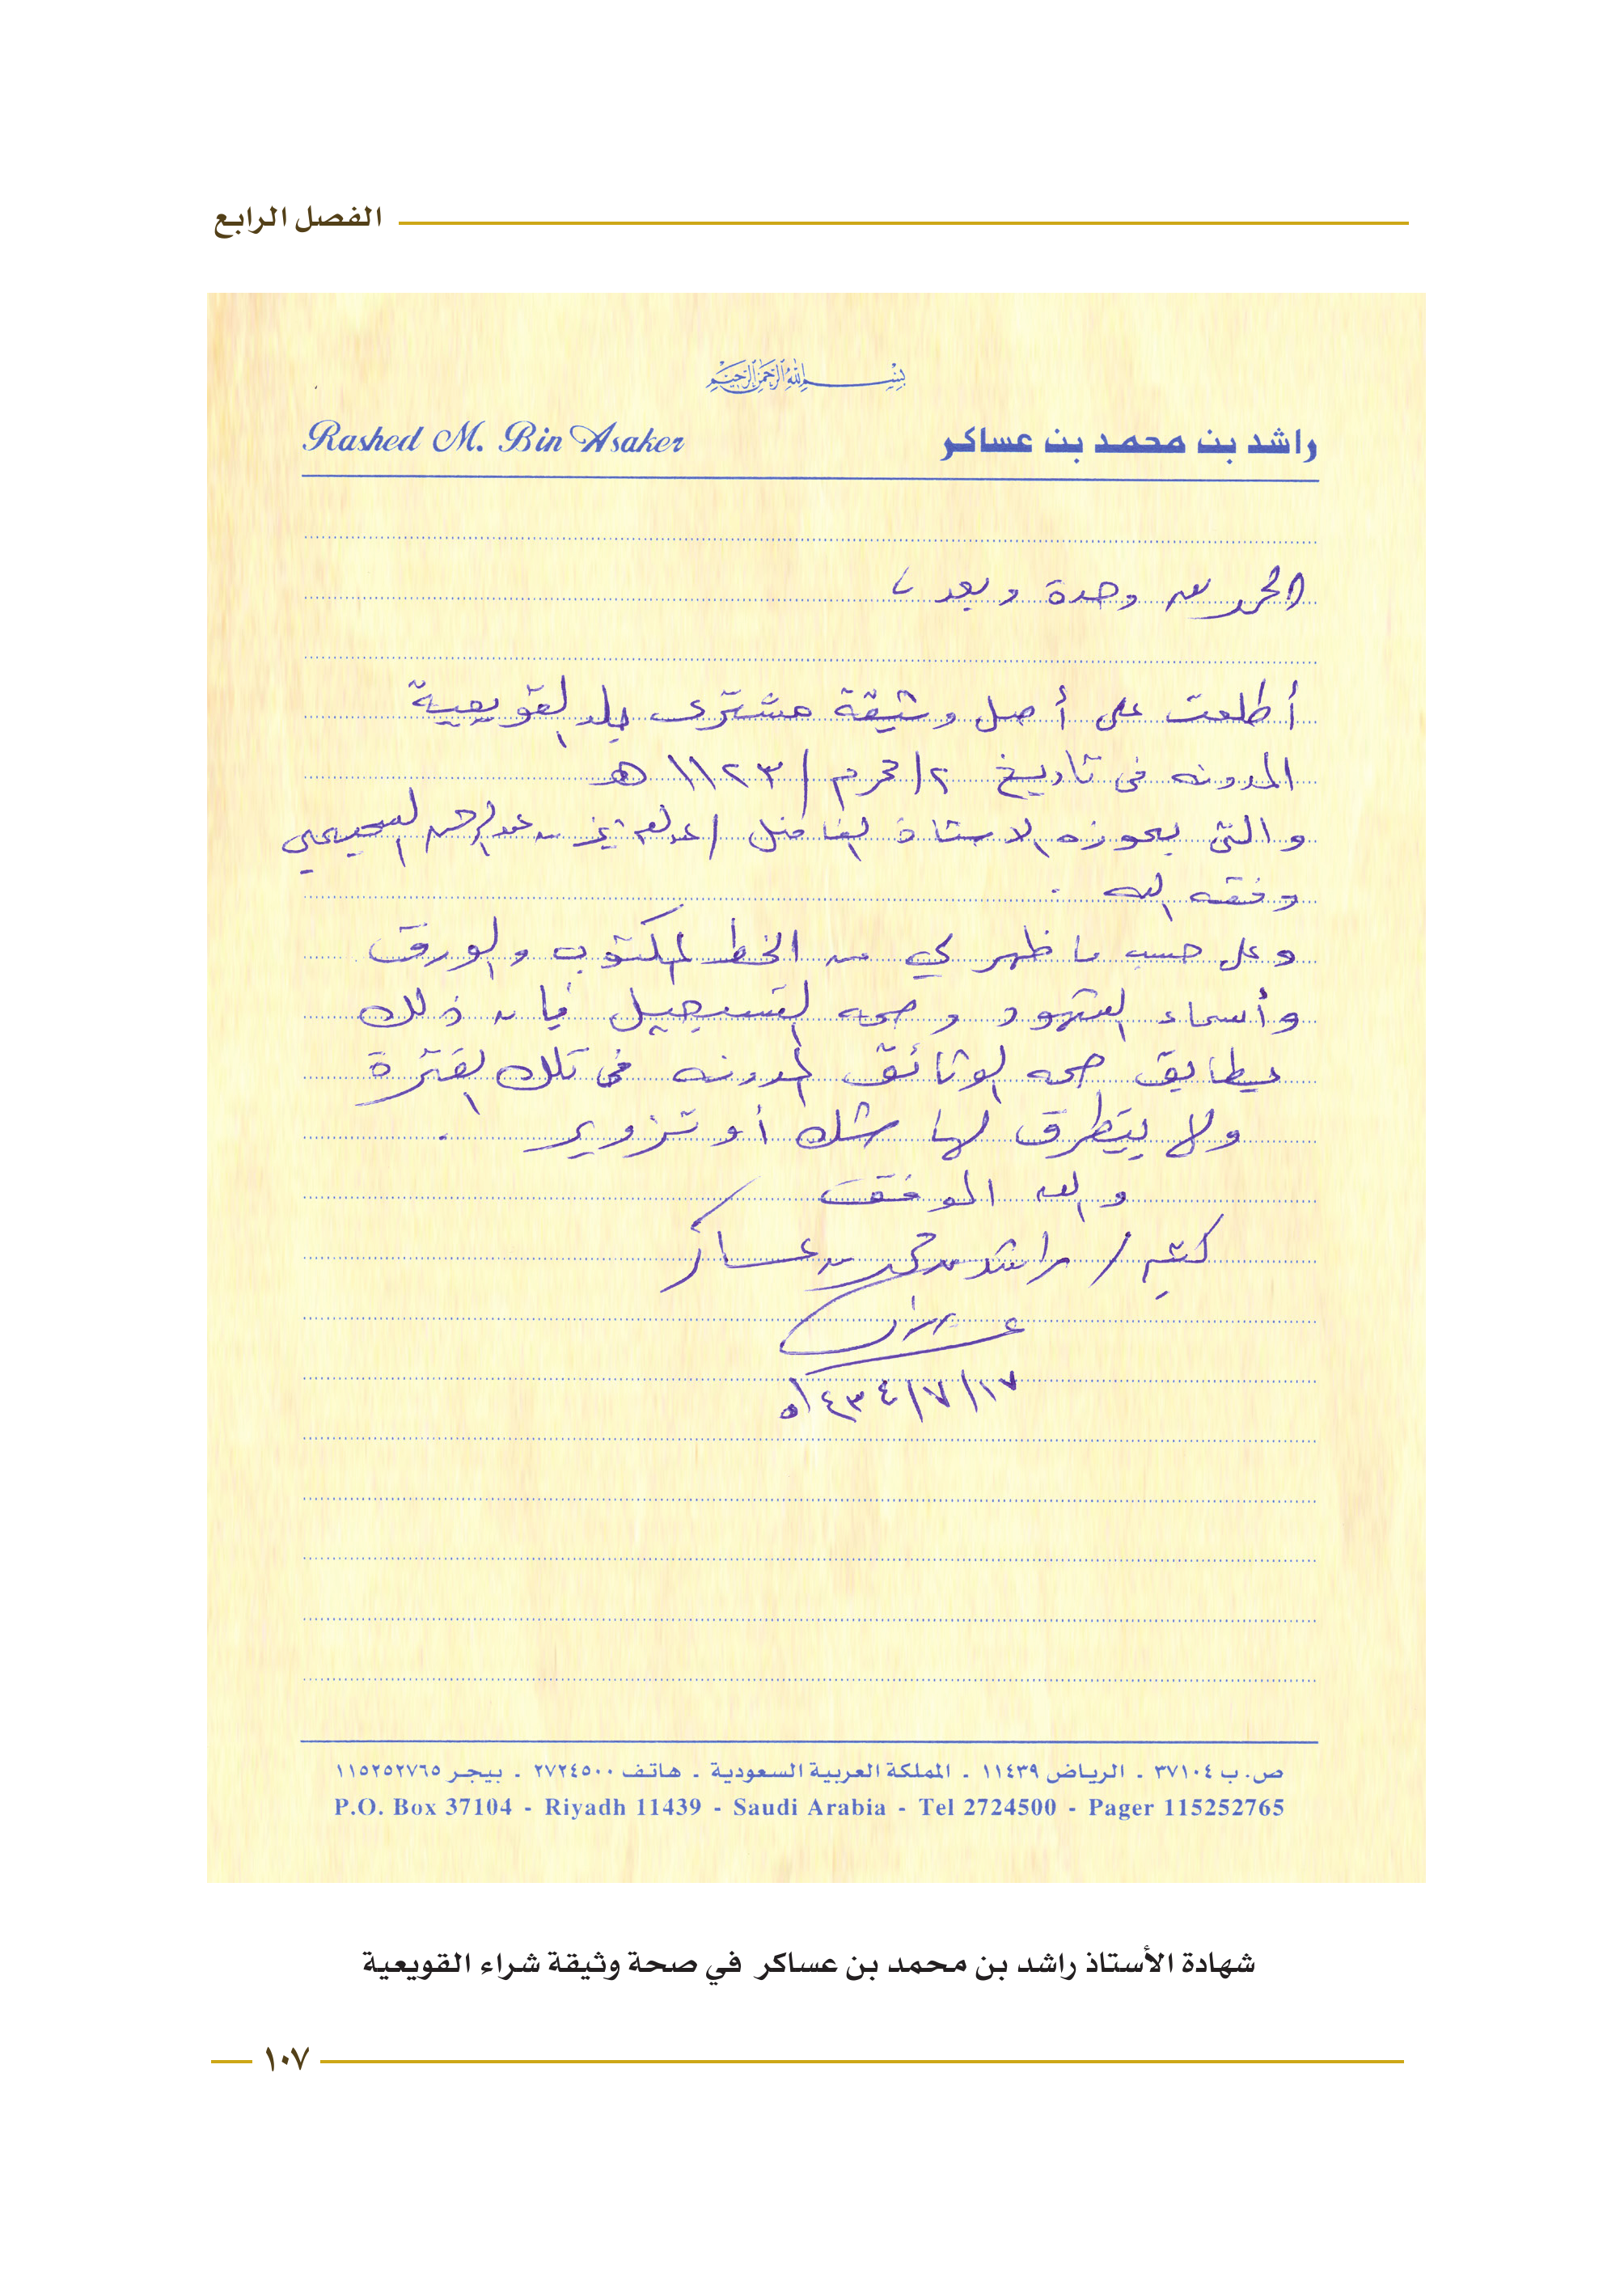 الفصل الرابع
بسم الله الرحمن الرحيم
راشد بن محمد بن عساكر
Rashed M. Bin Asaker
الحمد لله وحدة وبعد ،
أطلعت على أصل وثيقة مشترى بلد القويعية
المدونه في تاريخ ٢/محرم/١١٢٣ هـ
والتي بحوزه الاستاذ الفاضل / عبدالعزيز بن عبدالرحمن السحيمي
وفقه الله .
وعلى حسب ما ظهر لي من الخط المكتوب والورق
وأسماء الشهود وصحه التسجيل فإن ذلك
يطابق صحه الوثائق المدونه في تلك الفترة
ولا يتطرق لها شك أو تزوير .
والله الموفق
كتبه / راشد بن محمد بن عساكر
١٧/٧/١٤٣٤ه
ص.ب ٣٧١٠٤ - الرياض ١١٤٣٩ - المملكة العربية السعودية - هاتف ٢٧٢٤٥٠٠ - بيجر ١١٥٢٥٢٧٦٥
P.O. Box 37104 - Riyadh 11439 - Saudi Arabia - Tel 2724500 - Pager 115252765
شهادة الأستاذ راشد بن محمد بن عساكر في صحة وثيقة شراء القويعية
١٠٧